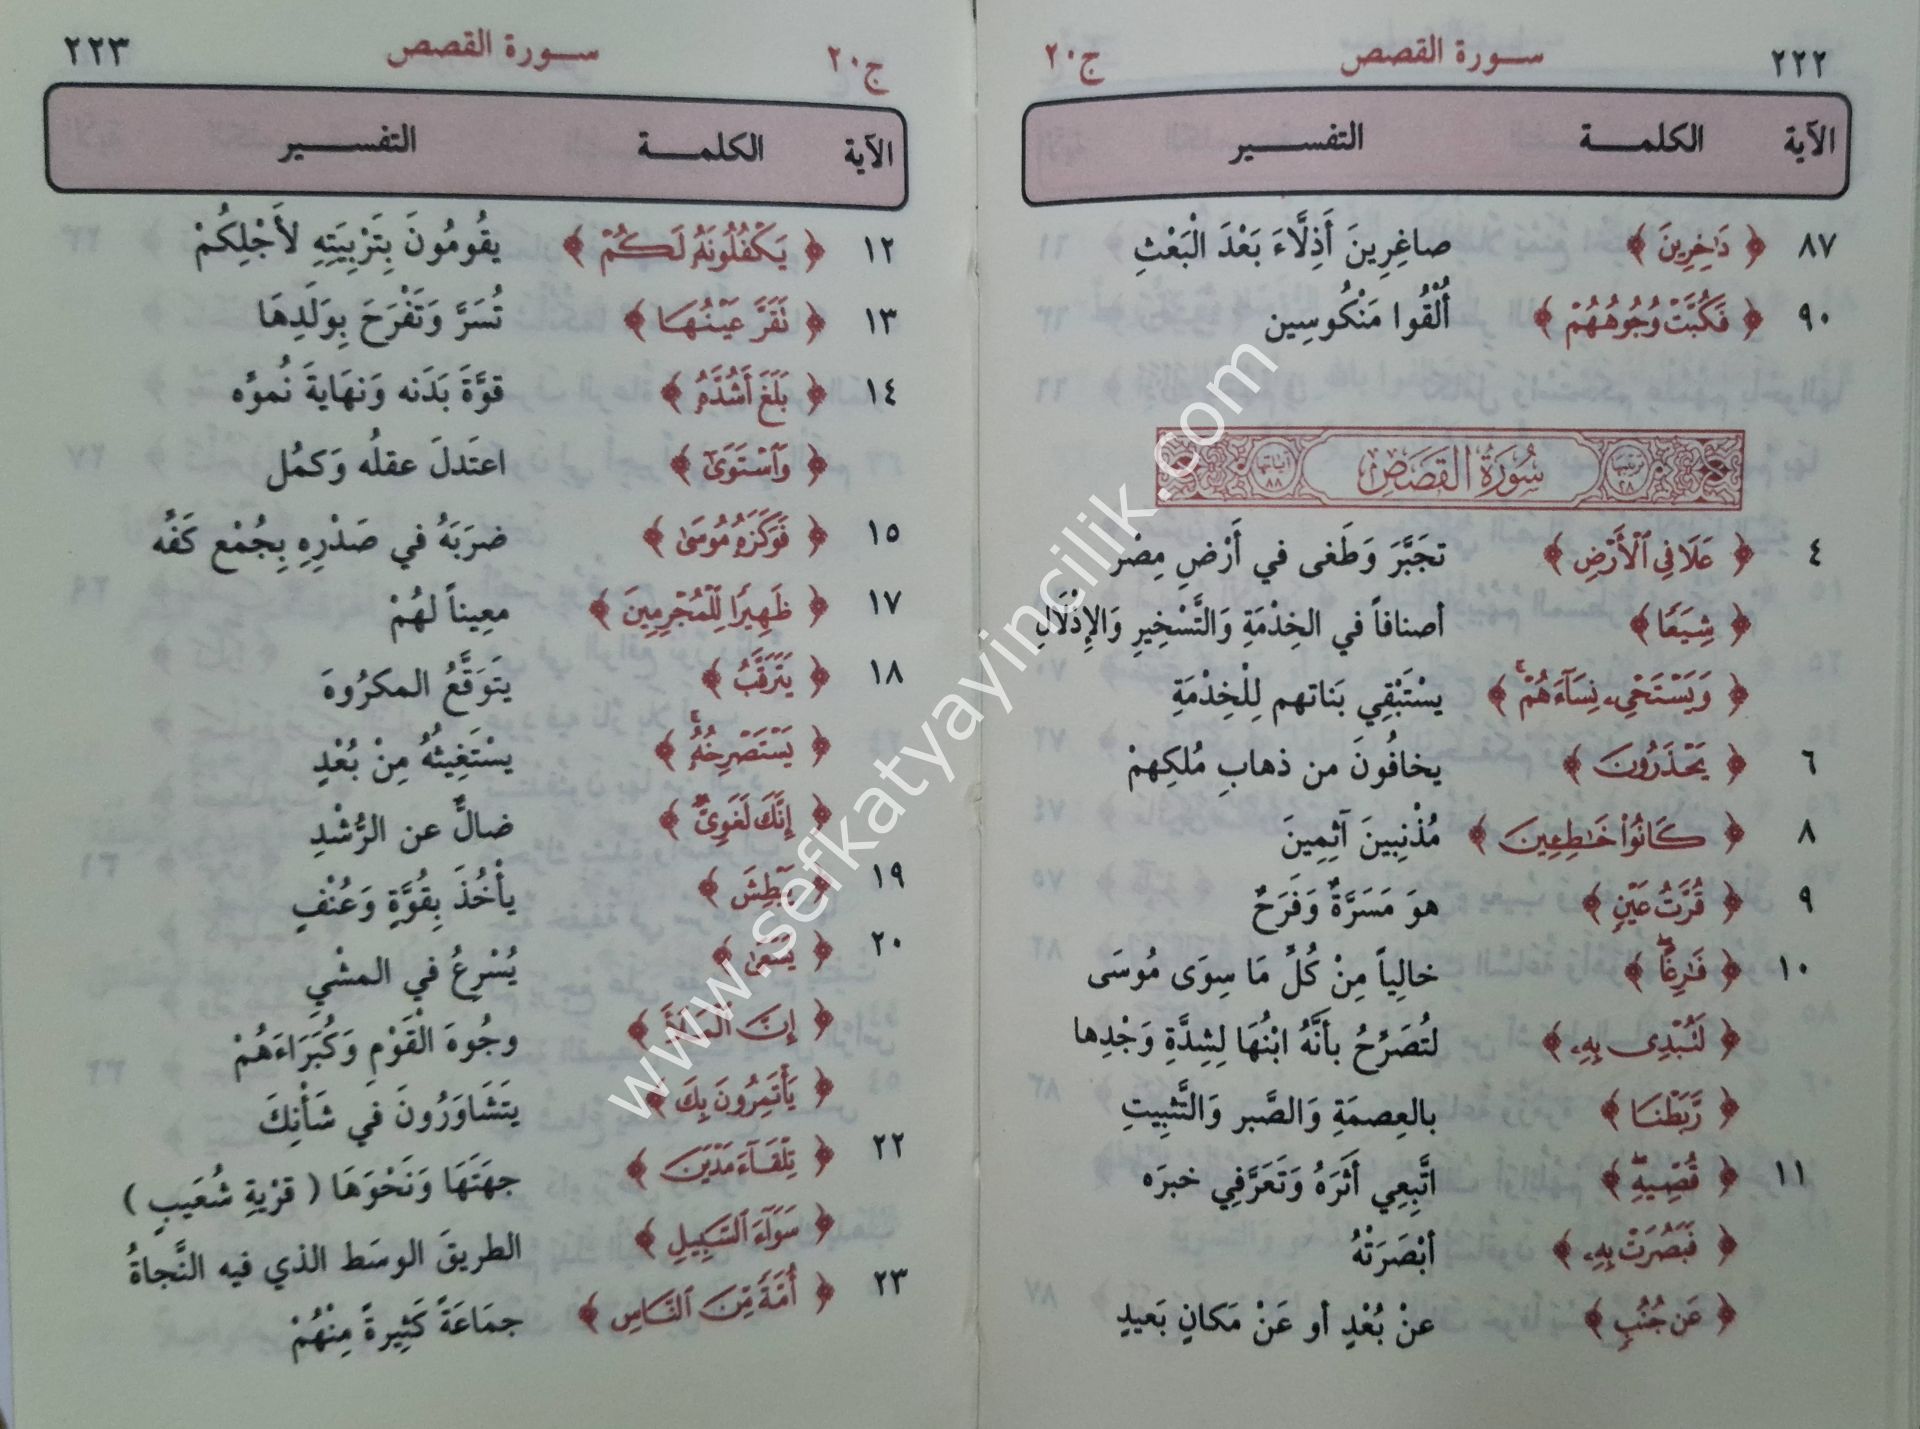 ٢٢٢ سورة القصص ج٢٠
الآية الكلمة التفسير
٨٧ ﴿ دَاخِرِينَ ﴾ صاغِرِينَ أَذِلَّاءَ بَعْدَ الْبَعْثِ
٩٠ ﴿ فَكُبَّتْ وُجُوهُهُمْ ﴾ أُلْقُوا مَنْكُوسِين
ترتيبها ٢٨ سُورَةُ القَصَصِ آياتها ٨٨
٤ ﴿ عَلَا فِي ٱلْأَرْضِ ﴾ تجَبَّرَ وَطَغى في أَرْضِ مِصْر
﴿ شِيَعًا ﴾ أصنافاً في الخِدْمَةِ وَالتَّسْخِيرِ وَالإِذْلَالِ
﴿ وَيَسْتَحْيِۦ نِسَآءَهُمْ ﴾ يسْتَبْقِي بَناتهم لِلْخِدْمَةِ
٦ ﴿ يَحْذَرُونَ ﴾ يخافُونَ من ذهابِ مُلكِهمْ
٨ ﴿ كَانُوا۟ خَٰطِـِٔينَ ﴾ مُذْنِبينَ آثِمِينَ
٩ ﴿ قُرَّتُ عَيْنٍ ﴾ هوَ مَسَرَّةٌ وَفَرَحٌ
١٠ ﴿ فَٰرِغًا ﴾ خالِياً مِنْ كُلِّ مَا سِوَى مُوسَى
﴿ لَتُبْدِى بِهِۦ ﴾ لتُصَرِّحُ بأنَّهُ ابْنُهَا لِشِدَّةِ وَجْدِها
﴿ رَّبَطْنَا ﴾ بالعِصمَةِ وَالصَّبر وَالتَّثبِيتِ
١١ ﴿ قُصِّيهِ ﴾ اتَّبِعِي أَثَرَهُ وَتَعَرَّفِي خبرَه
﴿ فَبَصُرَتْ بِهِۦ ﴾ أبْصَرَتْهُ
﴿ عَن جُنُبٍ ﴾ عنْ بُعْدٍ أو عَنْ مَكانٍ بَعيدٍ
ج٢٠ سورة القصص ٢٢٣
الآية الكلمة التفسير
١٢ ﴿ يَكْفُلُونَهُۥ لَكُمْ ﴾ يقُومُونَ بِتَرْبِيَتِهِ لأَجْلِكُمْ
١٣ ﴿ تَقَرَّ عَيْنُهَا ﴾ تُسَرَّ وَتَفْرَحَ بِوَلَدِهَا
١٤ ﴿ بَلَغَ أَشُدَّهُۥ ﴾ قوَّةَ بَدَنه وَنهَايةَ نُموِّه
﴿ وَٱسْتَوَىٰٓ ﴾ اعتَدلَ عقلُه وَكمُل
١٥ ﴿ فَوَكَزَهُۥ مُوسَىٰ ﴾ ضرَبَهُ في صَدْرِهِ بِجُمْع كَفِّه
١٧ ﴿ ظَهِيرًا لِّلْمُجْرِمِينَ ﴾ معِيناً لهُمْ
١٨ ﴿ يَتَرَقَّبُ ﴾ يتَوَقَّعُ المكرُوهَ
﴿ يَسْتَصْرِخُهُۥ ﴾ يسْتَغِيثُهُ مِنْ بُعْدٍ
﴿ إِنَّكَ لَغَوِىٌّ ﴾ ضالٌّ عن الرُّشْدِ
١٩ ﴿ يَبْطِشَ ﴾ يأخُذَ بِقُوَّةٍ وَعُنْفٍ
٢٠ ﴿ يَسْعَىٰ ﴾ يُسْرِعُ في المشْيِ
﴿ إِنَّ ٱلْمَلَأَ ﴾ وجُوهَ الْقَوْمِ وَكُبَرَاءَهُمْ
﴿ يَأْتَمِرُونَ بِكَ ﴾ يتَشَاوَرُونَ في شَأْنِكَ
٢٢ ﴿ تِلْقَآءَ مَدْيَنَ ﴾ جهَتَهَا وَنَحْوَهَا ( قرْيةِ شُعَيبٍ )
﴿ سَوَآءَ ٱلسَّبِيلِ ﴾ الطريقَ الوسَط الذي فيه النَّجاةُ
٢٣ ﴿ أُمَّةً مِّنَ ٱلنَّاسِ ﴾ جمَاعَةً كَثِيرةً مِنْهُمْ
www.sefkatyayincilik.com